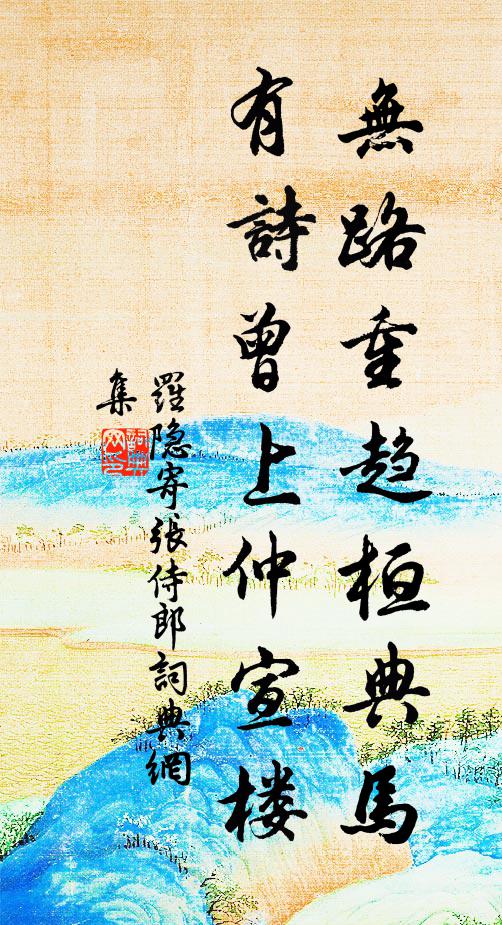 無路重趋桓典馬
有詩曾上仲宣楼
羅隐寄張侍郎詞典網
集